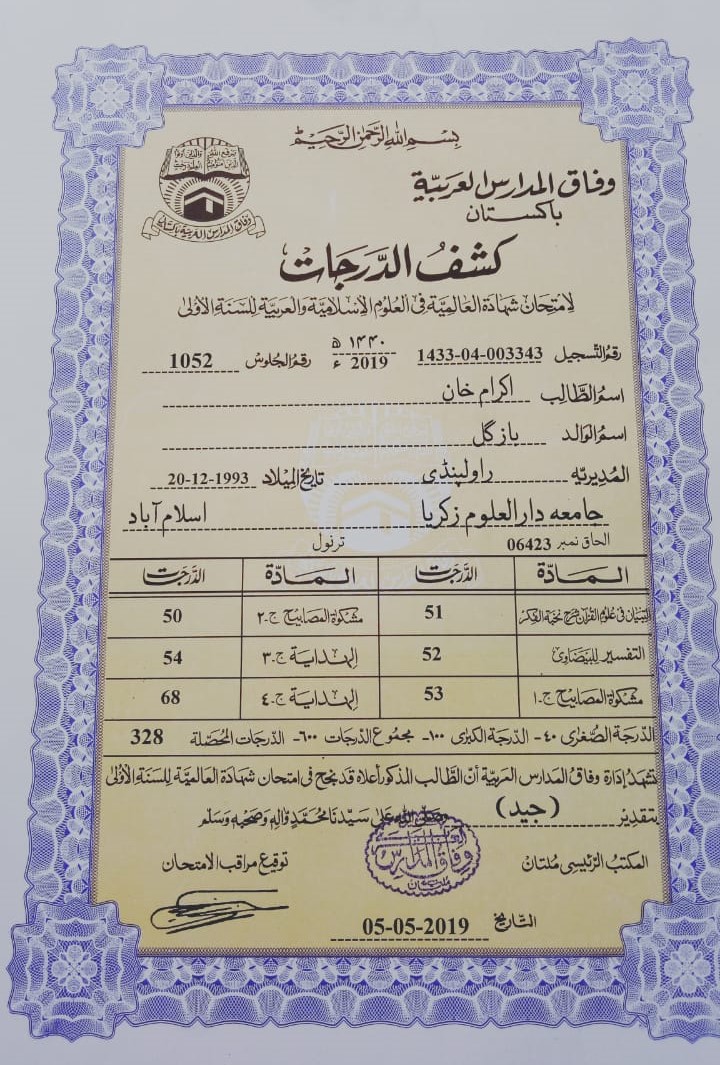 بِسْمِ اللهِ الرَّحْمٰنِ الرَّحِيْمِ
وفاق المدارس العربيّة
باكستان
وفاق المدارس العربية باكستان
كشفُ الدَّرَجَات
لامتحان شهادة العالميّة في العلوم الإسلاميّة والعربيّة للسَنَة الأولى
رقم التّسجيل 1433-04-003343 ١٤٤٠ ھ 2019 ء رقم الجلوس 1052
اسم الطّالب اکرام خان
اسم الوالد بازگل
المديريه راولپنڈی تاريخ الميلاد 20-12-1993
جامعه دارالعلوم زکریا اسلام آباد
الحاق نمبر 06423 ترنول
المادّة الدّرجات المادّة الدّرجات
التبيان في علوم القرآن شرح نخبة الفكر 51 مشكوٰة المصابيح ج-٢ 50
التفسير للبيضاوى 52 الهداية ج-٣ 54
مشكوٰة المصابيح ج-١ 53 الهداية ج-٤ 68
الدرجة الصّغرى ٤٠- الدرجة الكبرى ١٠٠- مجموع الدرجات ٦٠٠- الدرجات المحصّلة 328
تشهد إدارة وفاق المدارس العربية أنّ الطّالب المذكور أعلاه قد نجح في امتحان شهادة العالميّة للسَنَة الأولى
بتقدير (جيد) وصلى الله على سيّدنا محمّد وّآله وصحبه وسلّم
المكتب الرّئيسى مُلتان
وفاق المدارس
ملتان
توقيع مراقب الامتحان
التّاريخ 05-05-2019